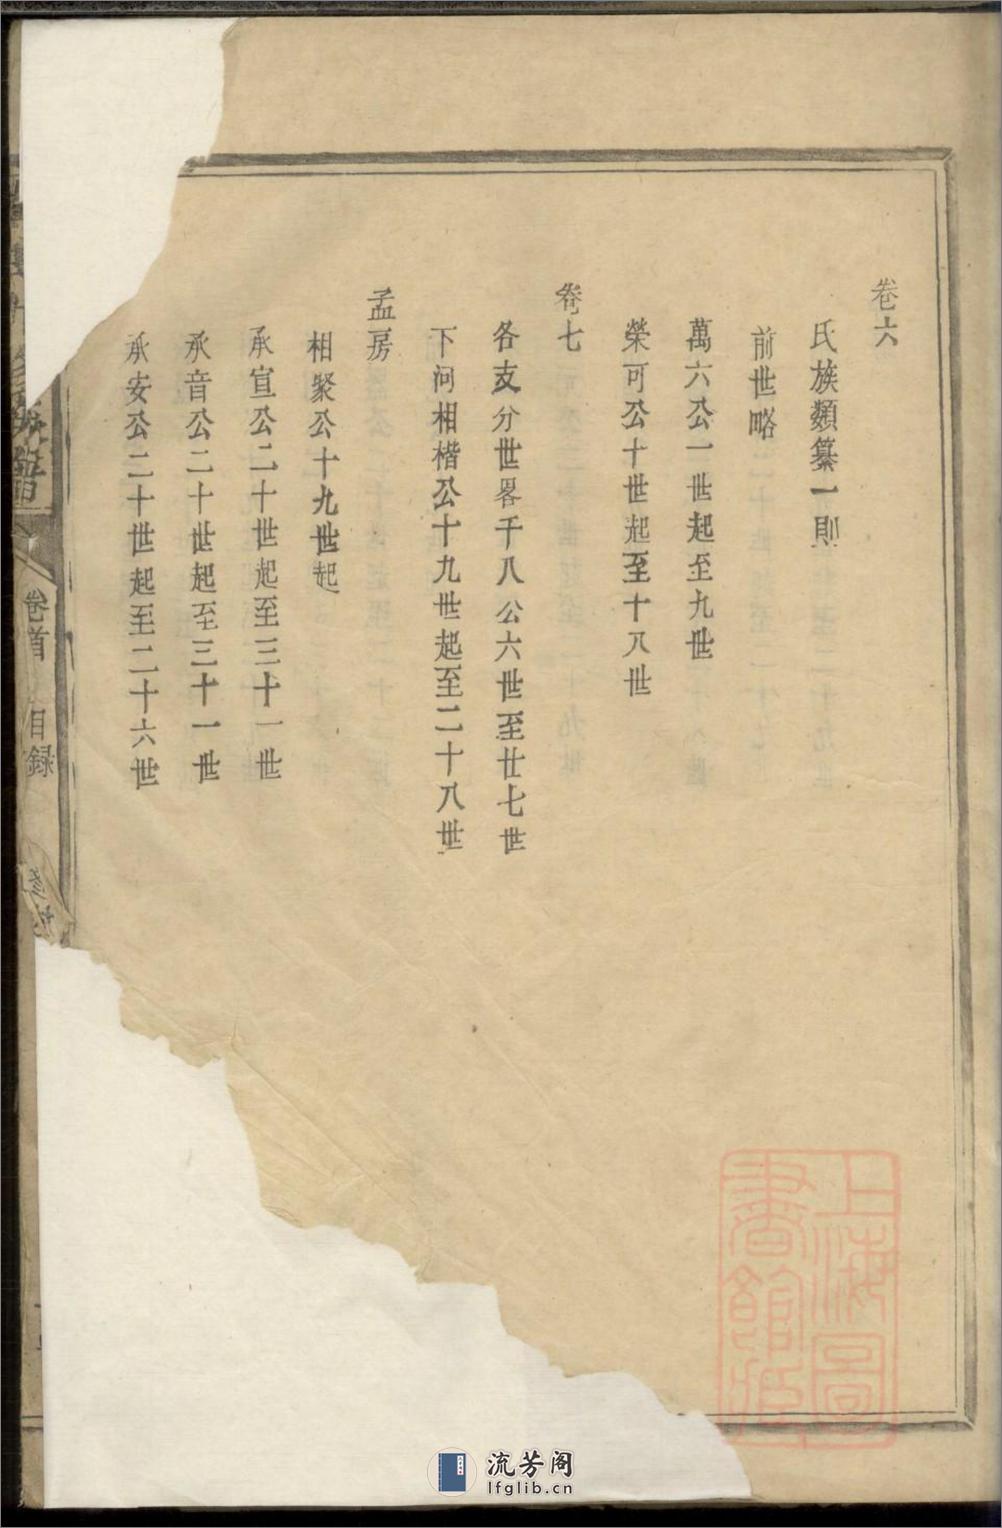 卷六
氏族類纂一則
前世略
萬六公一世起至九世
榮可公十世起至十八世
卷七
各支分世畧千八公六世至廿七世
下河相楷公十九世起至二十八世
孟房
相聚公十九世起
承宣公二十世起至三十一世
承音公二十世起至三十一世
承安公二十世起至二十六世
譜
卷首 目録
上海圖書館藏
流芳阁
lfglib.cn